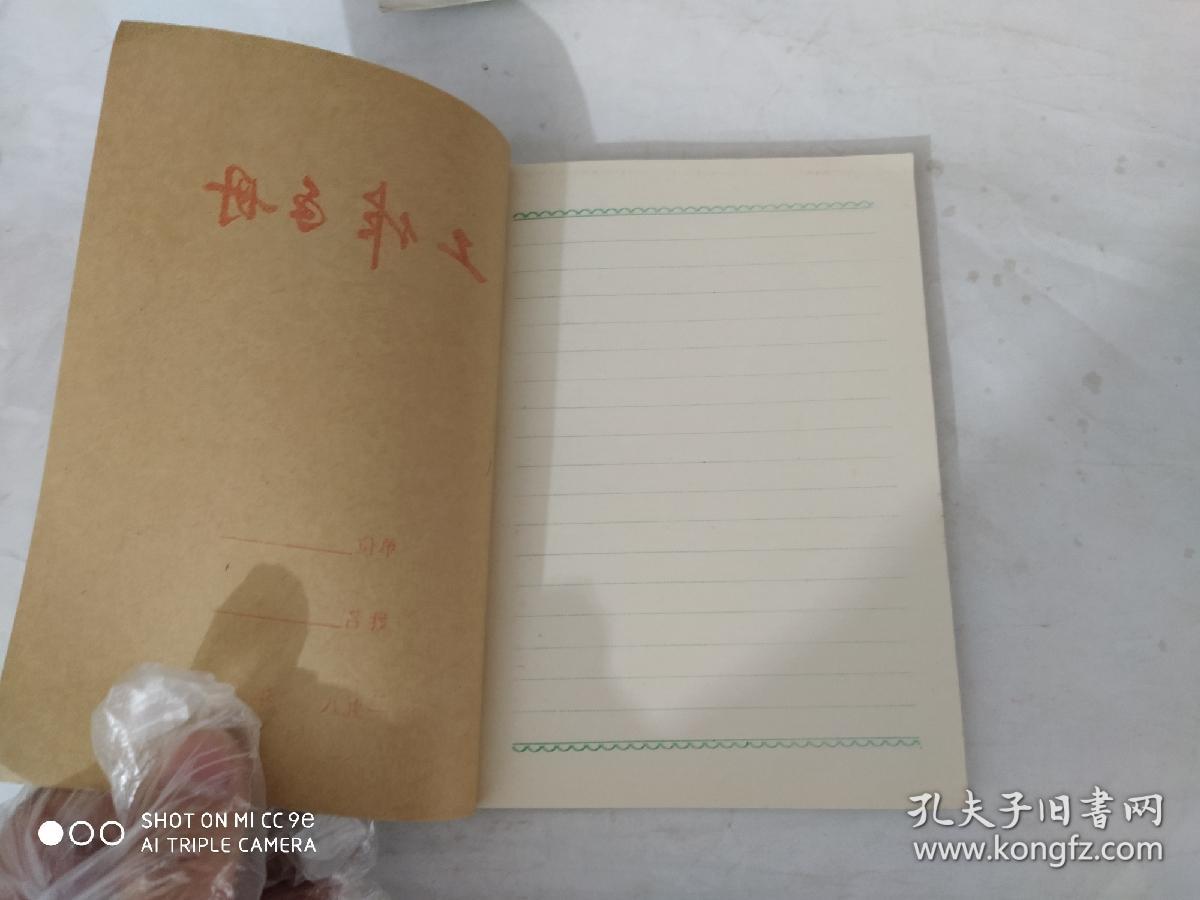 工作手册
单位
姓名
一九八 年
SHOT ON MI CC 9e
AI TRIPLE CAMERA
孔夫子旧书网
www.kongfz.com